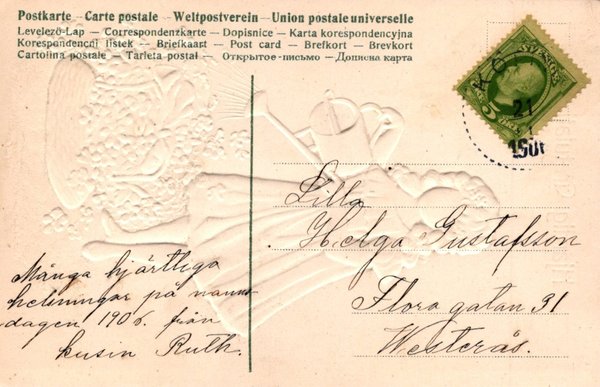 Postkarte – Carte postale – Weltpostverein – Union postale universelle
Levelező-Lap – Correspondenzkarte – Dopisnice – Karta korespondencyjna
Korespondenční lístek – Briefkaart – Post card – Brefkort – Brevkort
Cartolina postale – Tarjeta postal – Открытое-письмо – Дописна карта
SVERIGE
KÖ
21
1906
Lilla
Helga Gustafsson
Flora gatan 31
Westerås.
Många hjärtliga
helsningar på namns
dagen 1906. från
kusin Ruth.